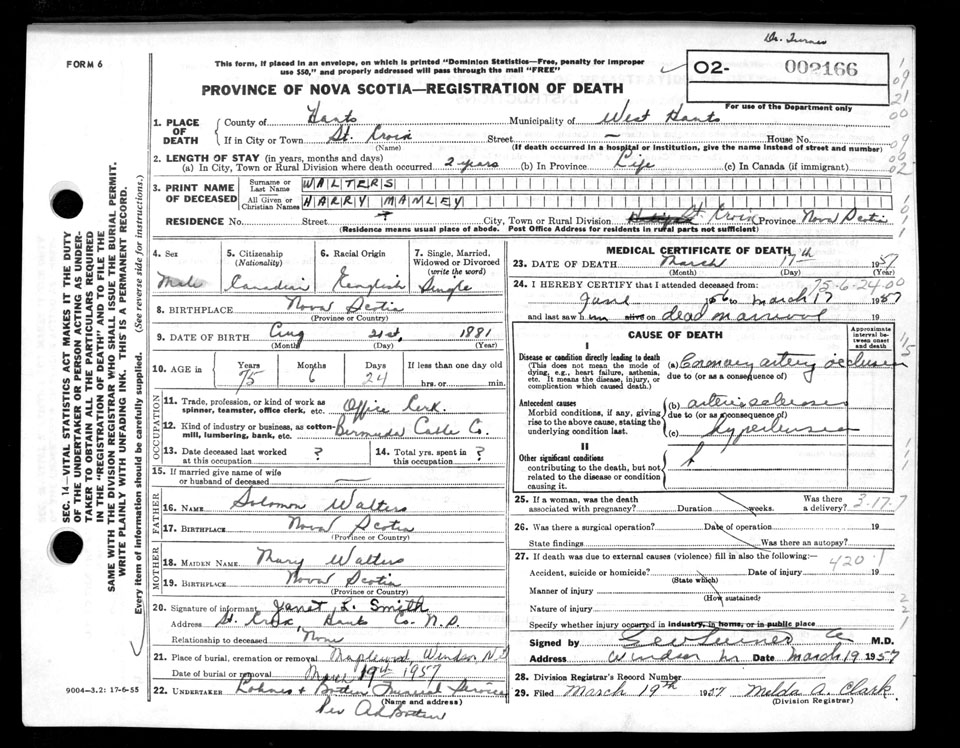 Dr. Turner
FORM 6
This form, if placed in an envelope, on which is printed "Dominion Statistics—Free, penalty for improper
use $50," and properly addressed will pass through the mail "FREE"
O2- 002166
For use of the Department only
PROVINCE OF NOVA SCOTIA—REGISTRATION OF DEATH
SEC. 14—VITAL STATISTICS ACT MAKES IT THE DUTY
OF THE UNDERTAKER OR PERSON ACTING AS UNDER-
TAKER TO OBTAIN ALL THE PARTICULARS REQUIRED
IN THE "REGISTRATION OF DEATH" AND TO FILE THE
SAME WITH THE DIVISION REGISTRAR WHO SHALL ISSUE THE BURIAL PERMIT.
WRITE PLAINLY WITH UNFADING INK. THIS IS A PERMANENT RECORD.
Every item of information should be carefully supplied. (See reverse side for instructions.)
1. PLACE OF DEATH
County of Hants Municipality of West Hants
If in City or Town St. Croix Street — House No.
(Name) (If death occurred in a hospital or institution, give the name instead of street and number)
2. LENGTH OF STAY (in years, months and days)
(a) In City, Town or Rural Division where death occurred 2 years (b) In Province Life (c) In Canada (if immigrant)
3. PRINT NAME OF DECEASED
Surname or Last Name WALTERS
All Given or Christian Names HARRY MANLEY
RESIDENCE No. Street City, Town or Rural Division St. Croix Province Nova Scotia
(Residence means usual place of abode. Post Office Address for residents in rural parts not sufficient)
4. Sex
Male
5. Citizenship
(Nationality)
Canadian
6. Racial Origin
English
7. Single, Married,
Widowed or Divorced
(write the word)
Single
8. BIRTHPLACE Nova Scotia
(Province or Country)
9. DATE OF BIRTH Aug 21st, 1881
(Month) (Day) (Year)
10. AGE in Years Months Days If less than one day old
75 6 24 hrs. or min.
OCCUPATION
11. Trade, profession, or kind of work as
spinner, teamster, office clerk, etc. Office Clerk.
12. Kind of industry or business, as cotton-
mill, lumbering, bank, etc. Bermuda Cable Co.
13. Date deceased last worked
at this occupation ?
14. Total yrs. spent in
this occupation ?
15. If married give name of wife
or husband of deceased —
FATHER
16. NAME Solomon Walters
17. BIRTHPLACE Nova Scotia
(Province or Country)
MOTHER
18. MAIDEN NAME Mary Walters
19. BIRTHPLACE Nova Scotia
(Province or Country)
20. Signature of informant Janet L. Smith
Address St. Croix, Hants Co. N.S.
Relationship to deceased None
21. Place of burial, cremation or removal Maplewood, Windsor N.S.
Date of burial or removal March 19th 1957
22. UNDERTAKER Funeral Service
(Name and address)
Per
9004—3.2: 17-6-55
MEDICAL CERTIFICATE OF DEATH
23. DATE OF DEATH March 17th 1957
(Month) (Day) (Year)
75-6-24-00
24. I HEREBY CERTIFY that I attended deceased from:
1956 to March 17 1957
and last saw him alive on dead on arrival
CAUSE OF DEATH
Approximate
interval be-
tween onset
and death
I
Disease or condition directly leading to death
(This does not mean the mode of
dying, e.g., heart failure, asthenia,
etc. It means the disease, injury, or
complication which caused death.)
(a) Coronary artery occlusion
due to (or as a consequence of)
Antecedent causes
Morbid conditions, if any, giving
rise to the above cause, stating the
underlying condition last.
(b) arteriosclerosis
due to (or as a consequence of)
(c) Hypertension
II
Other significant conditions
contributing to the death, but not
related to the disease or condition
causing it.
25. If a woman, was the death
associated with pregnancy? Duration weeks. Was there
a delivery?
3-17-7
26. Was there a surgical operation? Date of operation 19
State findings Was there an autopsy?
27. If death was due to external causes (violence) fill in also the following:
420.1
Accident, suicide or homicide? Date of injury 19
(State which)
Manner of injury
(How sustained)
Nature of injury
Specify whether injury occurred in industry, in home, or in public place
Signed by M.D.
Address Windsor NS Date March 19 1957
28. Division Registrar's Record Number
29. Filed March 19th 1957 Melda A. Clark
(Division Registrar)